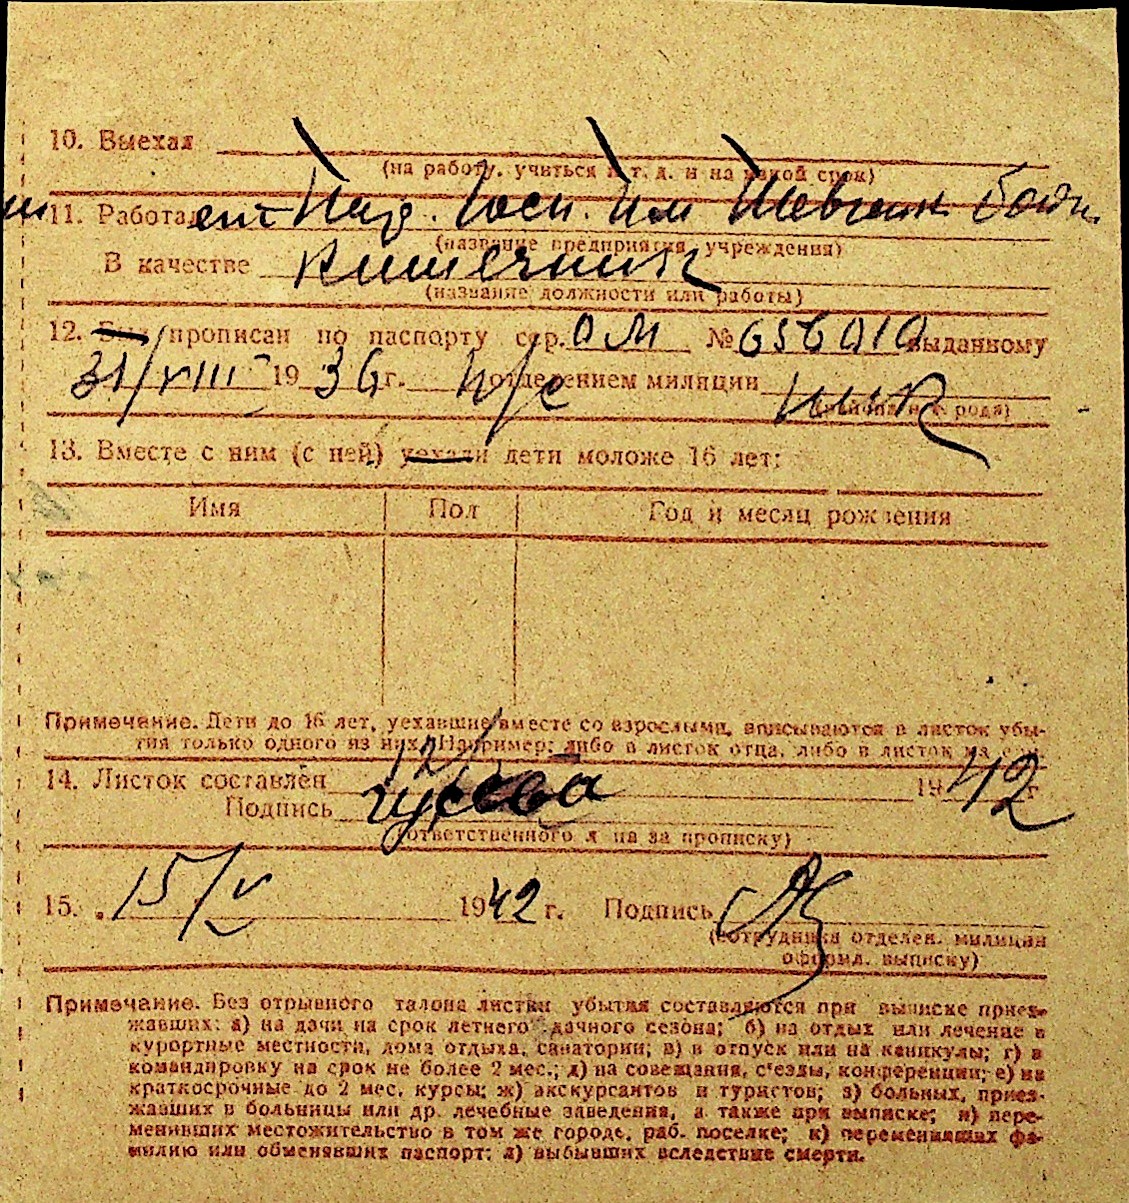 10. Выехал
(на работу, учиться и т. д. и на какой срок)
11. Работал
(название предприятия, учреждения)
В качестве
(название должности или работы)
12. Был прописан по паспорту сер. ОМ № 656010 выданному
31/VIII 1936 г. отделением милиции
(района и города)
13. Вместе с ним (с ней) уехали дети моложе 16 лет:
Имя Пол Год и месяц рождения
Примечание. Дети до 16 лет, уехавшие вместе со взрослыми, вписываются в листок убы-
тия только одного из них. Например: либо в листок отца, либо в листок
14. Листок составлен 12/ 1942 г.
Подпись Гусева
(ответственного за прописку)
15. 15/V 1942 г. Подпись
(сотрудника отделен. милиции
оформл. выписку)
Примечание. Без отрывного талона листки убытия составляются при выписке приез-
жавших: а) на дачи на срок летнего дачного сезона; б) на отдых или лечение в
курортные местности, дома отдыха, санатории; в) в отпуск или на каникулы; г) в
командировку на срок не более 2 мес.; д) на совещания, с'езды, конференции; е) на
краткосрочные до 2 мес. курсы; ж) экскурсантов и туристов; з) больных, приез-
жавших в больницы или др. лечебные заведения, а также при выписке; и) пере-
менивших местожительство в том же городе, раб. поселке; к) переменивших фа-
милию или обменявших паспорт; л) выбывших вследствие смерти.